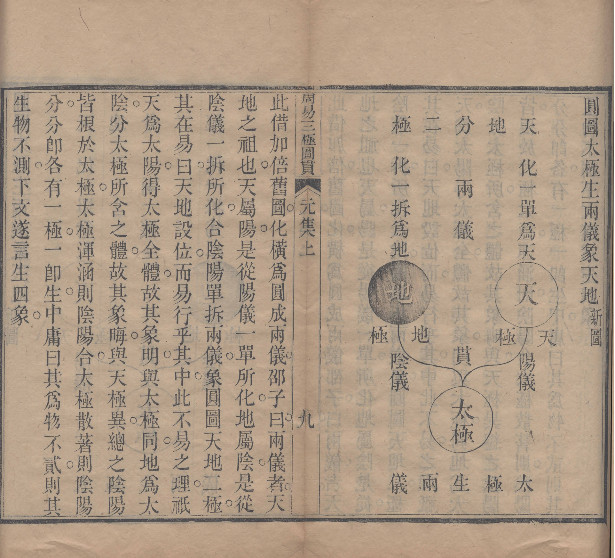 圓圖太極生兩儀象天地新圖
天化一單爲天
天
陽儀
太
天極
地
極
分兩儀
貫
太極
生
二
地極
兩
極化一拆爲地
地
陰儀
儀
周易三極圖貫
元集上
九
此借加倍舊圖化橫爲圓成兩儀邵子曰兩儀者天
地之祖也天屬陽是從陽儀一單所化地屬陰是從
陰儀一拆所化合陰陽單拆兩儀象圓圖天地二極
其在易曰天地設位而易行乎其中此不易之理祇
天爲太陽得太極全體故其象明與太極同地爲太
陰分太極所含之體故其象晦與天極異總之陰陽
皆根於太極太極渾涵則陰陽合太極散著則陰陽
分分卽各有一極一卽生中庸曰其爲物不貳則其
生物不測下文遂言生四象